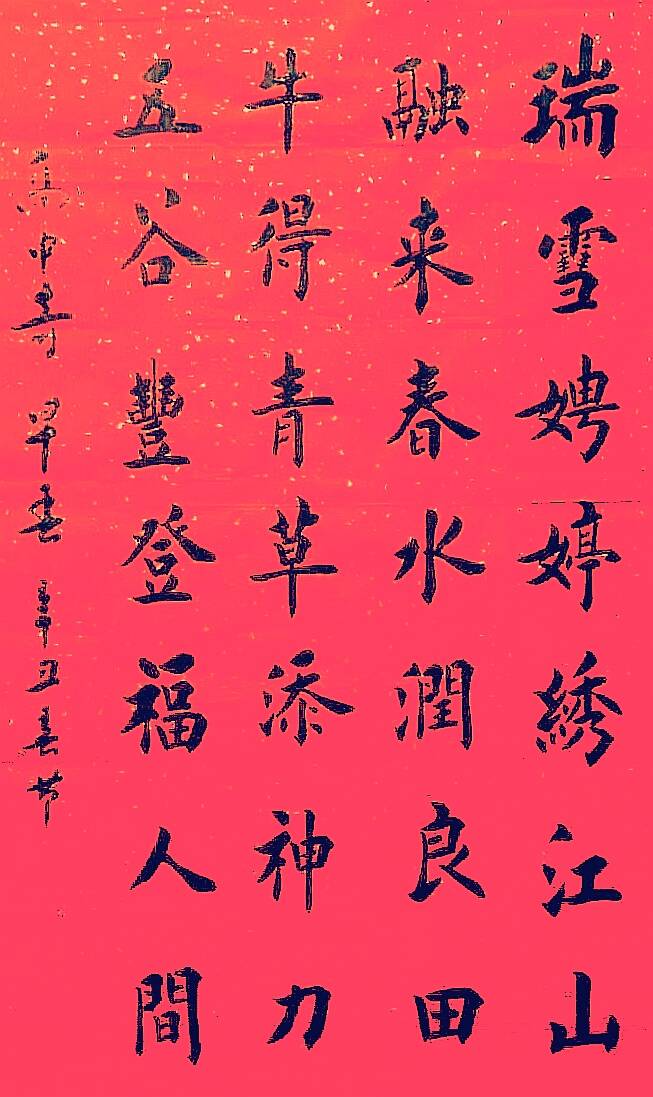 瑞雪娉婷綉江山
融来春水潤良田
牛得青草添神力
五谷豐登福人間
早春 辛丑春节